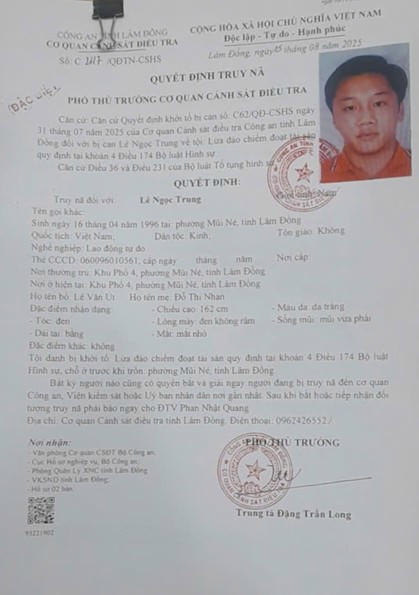 CÔNG AN TỈNH LÂM ĐỒNG
CƠ QUAN CẢNH SÁT ĐIỀU TRA
Số: C 2117 /QĐTN-CSHS
CỘNG HÒA XÃ HỘI CHỦ NGHĨA VIỆT NAM
Độc lập - Tự do - Hạnh phúc
Lâm Đồng, ngày 05 tháng 08 năm 2025
ĐẶC BIỆT
QUYẾT ĐỊNH TRUY NÃ
PHÓ THỦ TRƯỞNG CƠ QUAN CẢNH SÁT ĐIỀU TRA
Căn cứ: Căn cứ Quyết định khởi tố bị can số: C62/QĐ-CSHS ngày
31 tháng 07 năm 2025 của Cơ quan Cảnh sát điều tra Công an tỉnh Lâm
Đồng đối với bị can Lê Ngọc Trung về tội: Lừa đảo chiếm đoạt tài sản
quy định tại khoản 4 Điều 174 Bộ luật Hình sự
Căn cứ Điều 36 và Điều 231 của Bộ luật Tố tụng hình sự
QUYẾT ĐỊNH:
Truy nã đối với: Lê Ngọc Trung Giới tính: Nam
Tên gọi khác:
Sinh ngày 16 tháng 04 năm 1996 tại: phường Mũi Né, tỉnh Lâm Đồng
Quốc tịch: Việt Nam; Dân tộc: Kinh; Tôn giáo: Không
Nghề nghiệp: Lao động tự do
Thẻ CCCD: 060096010561; cấp ngày tháng năm Nơi cấp:
Nơi thường trú: Khu Phố 4, phường Mũi Né, tỉnh Lâm Đồng
Nơi ở hiện tại: Khu Phố 4, phường Mũi Né, tỉnh Lâm Đồng
Họ tên bố: Lê Văn Út Họ tên mẹ: Đỗ Thị Nhạn
Đặc điểm nhân dạng: - Chiều cao: 162 cm - Màu da: da trắng
- Tóc: đen - Lông mày: đen không rậm - Sống mũi: mũi vừa phải
- Dái tai: bằng - Mắt: mắt nhỏ
Đặc điểm khác: không
Tội danh bị khởi tố: Lừa đảo chiếm đoạt tài sản quy định tại khoản 4 Điều 174 Bộ luật
Hình sự, chỗ ở trước khi trốn: phường Mũi Né, tỉnh Lâm Đồng.
Bất kỳ người nào cũng có quyền bắt và giải ngay người đang bị truy nã đến cơ quan
Công an, Viện kiểm sát hoặc Uỷ ban nhân dân nơi gần nhất. Sau khi bắt hoặc tiếp nhận đối
tượng truy nã phải báo ngay cho ĐTV Phan Nhật Quang
Địa chỉ: Cơ quan Cảnh sát điều tra tỉnh Lâm Đồng. Điện thoại: 0962426552./
Nơi nhận:
- Văn phòng Cơ quan CSĐT Bộ Công an;
- Cục Hồ sơ nghiệp vụ, Bộ Công an;
- Phòng Quản Lý XNC tỉnh Lâm Đồng;
- VKSND tỉnh Lâm Đồng;
- Hồ sơ 02 bản.
93221902
PHÓ THỦ TRƯỞNG
CƠ QUAN CẢNH SÁT ĐIỀU TRA
Trung tá Đặng Trần Long